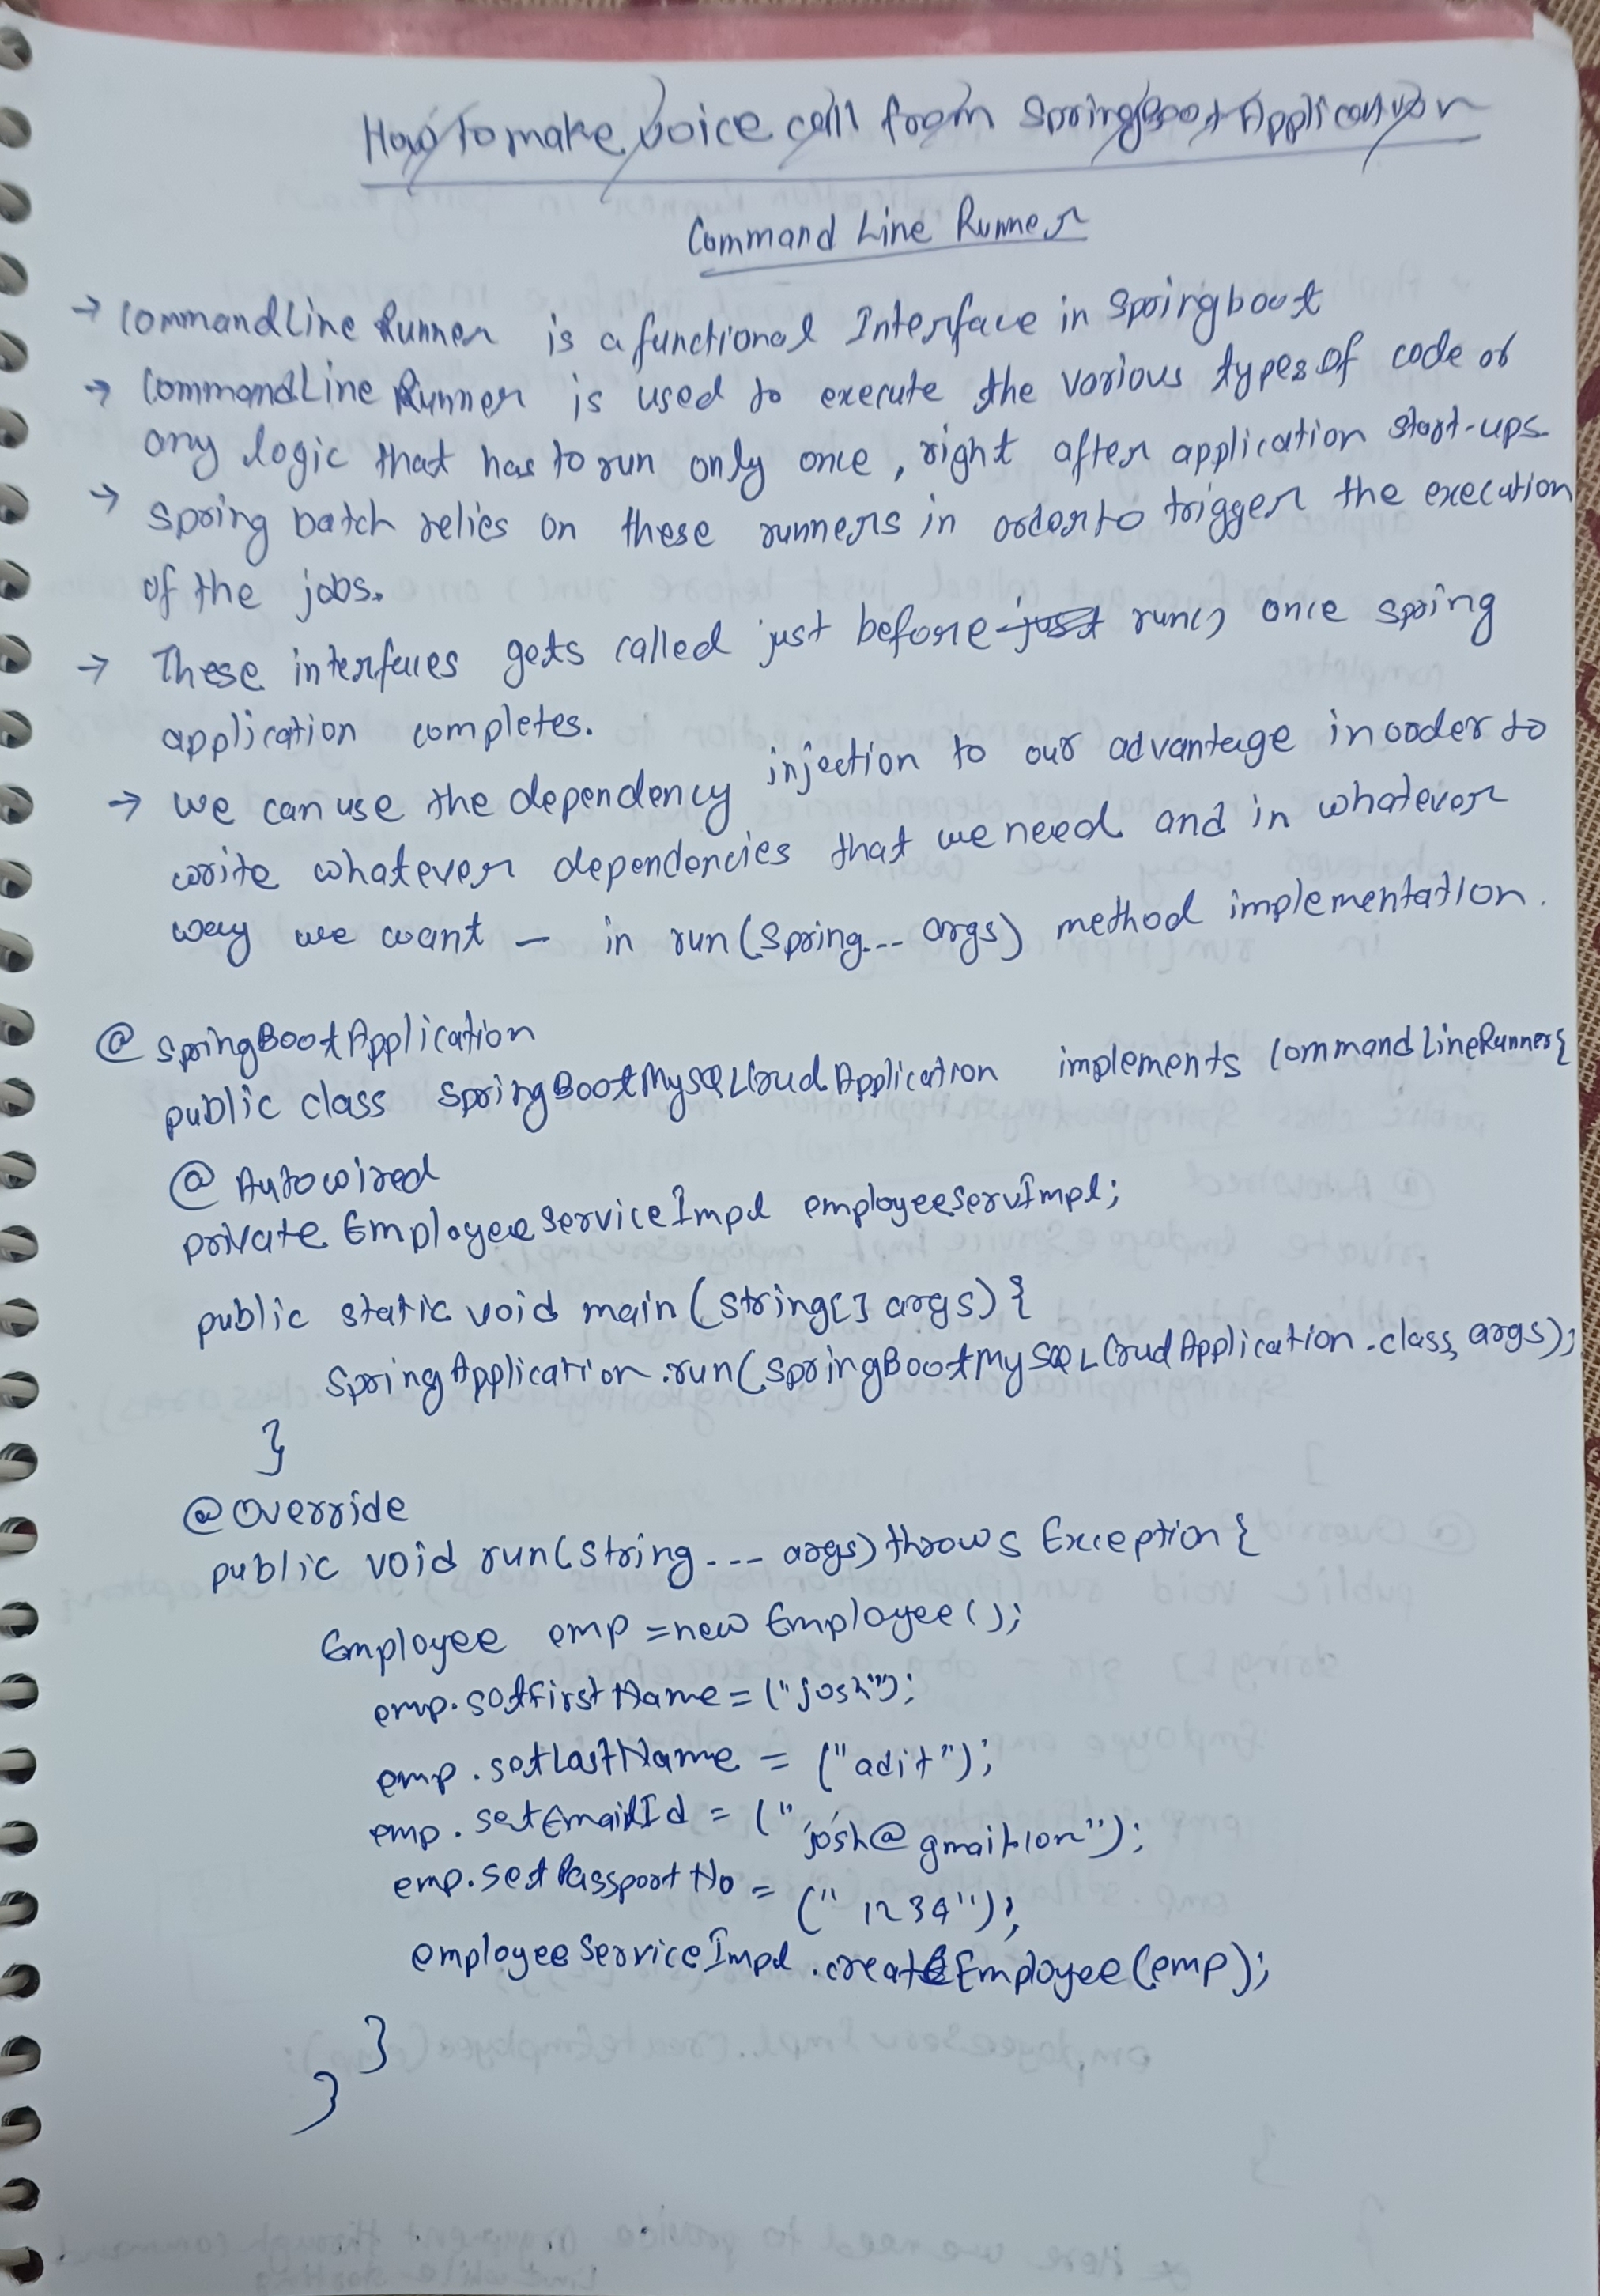 How To make voice call from SpringBoot Application
Command Line Runner
→ CommandLine Runner is a functional Interface in Springboot
→ CommandLine Runner is used to execute the various types of code or
any logic that has to run only once, right after application start-ups
→ Spring batch relies on these runners in order to trigger the execution
of the jobs.
→ These interfaces gets called just before just run() once spring
application completes.
→ we can use the dependency injection to our advantage in order to
write whatever dependencies that we need and in whatever
way we want - in run(Spring... args) method implementation.
@ SpringBootApplication
public class SpringBootMySQLCrudApplication implements CommandLineRunner{
@ Autowired
private EmployeeServiceImpl employeeServImpl;
public static void main(String[] args){
SpringApplication.run(SpringBootMySQLCrudApplication.class, args);
}
@Override
public void run(String... args) throws Exception{
Employee emp = new Employee();
emp.setFirstName = ("josh");
emp.setLastName = ("adit");
emp.setEmailId = ("josh@
emp.setPassportNo = ("1234");
employeeServiceImpl.createEmployee(emp);
}
}